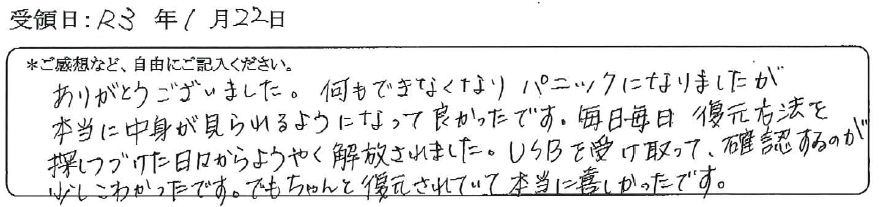 受領日：R3 年 1 月 22 日
*ご感想など、自由にご記入ください。
ありがとうございました。何もできなくなり パニックになりましたが
本当に中身が見られるようになって良かったです。毎日毎日 復元方法を
探しつづけた日々からようやく解放されました。USBを受け取って、確認するのが
少しこわかったです。でもちゃんと復元されていて本当に喜しかったです。